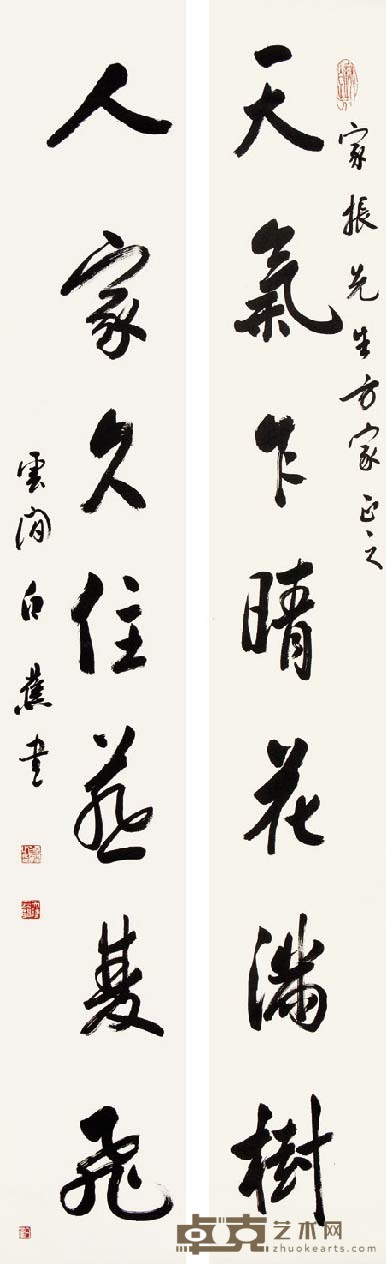 家振先生方家正之
天氣乍晴花滿樹
人家久住燕雙飛
雲間白蕉書
卓克艺术网
zhuokearts.com